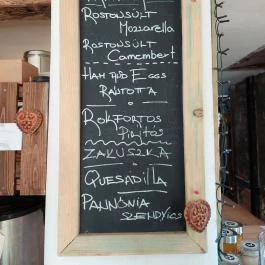 ROSTONSÜLT
MOZZARELLA
ROSTONSÜLT
CAMEMBERT
HAM AND EGGS
RÁNTOTTA
ROKFORTOS
PIRÍTÓS
ZAKUSZKA
QUESADILLA
PANNÓNIA
SZENDVICS